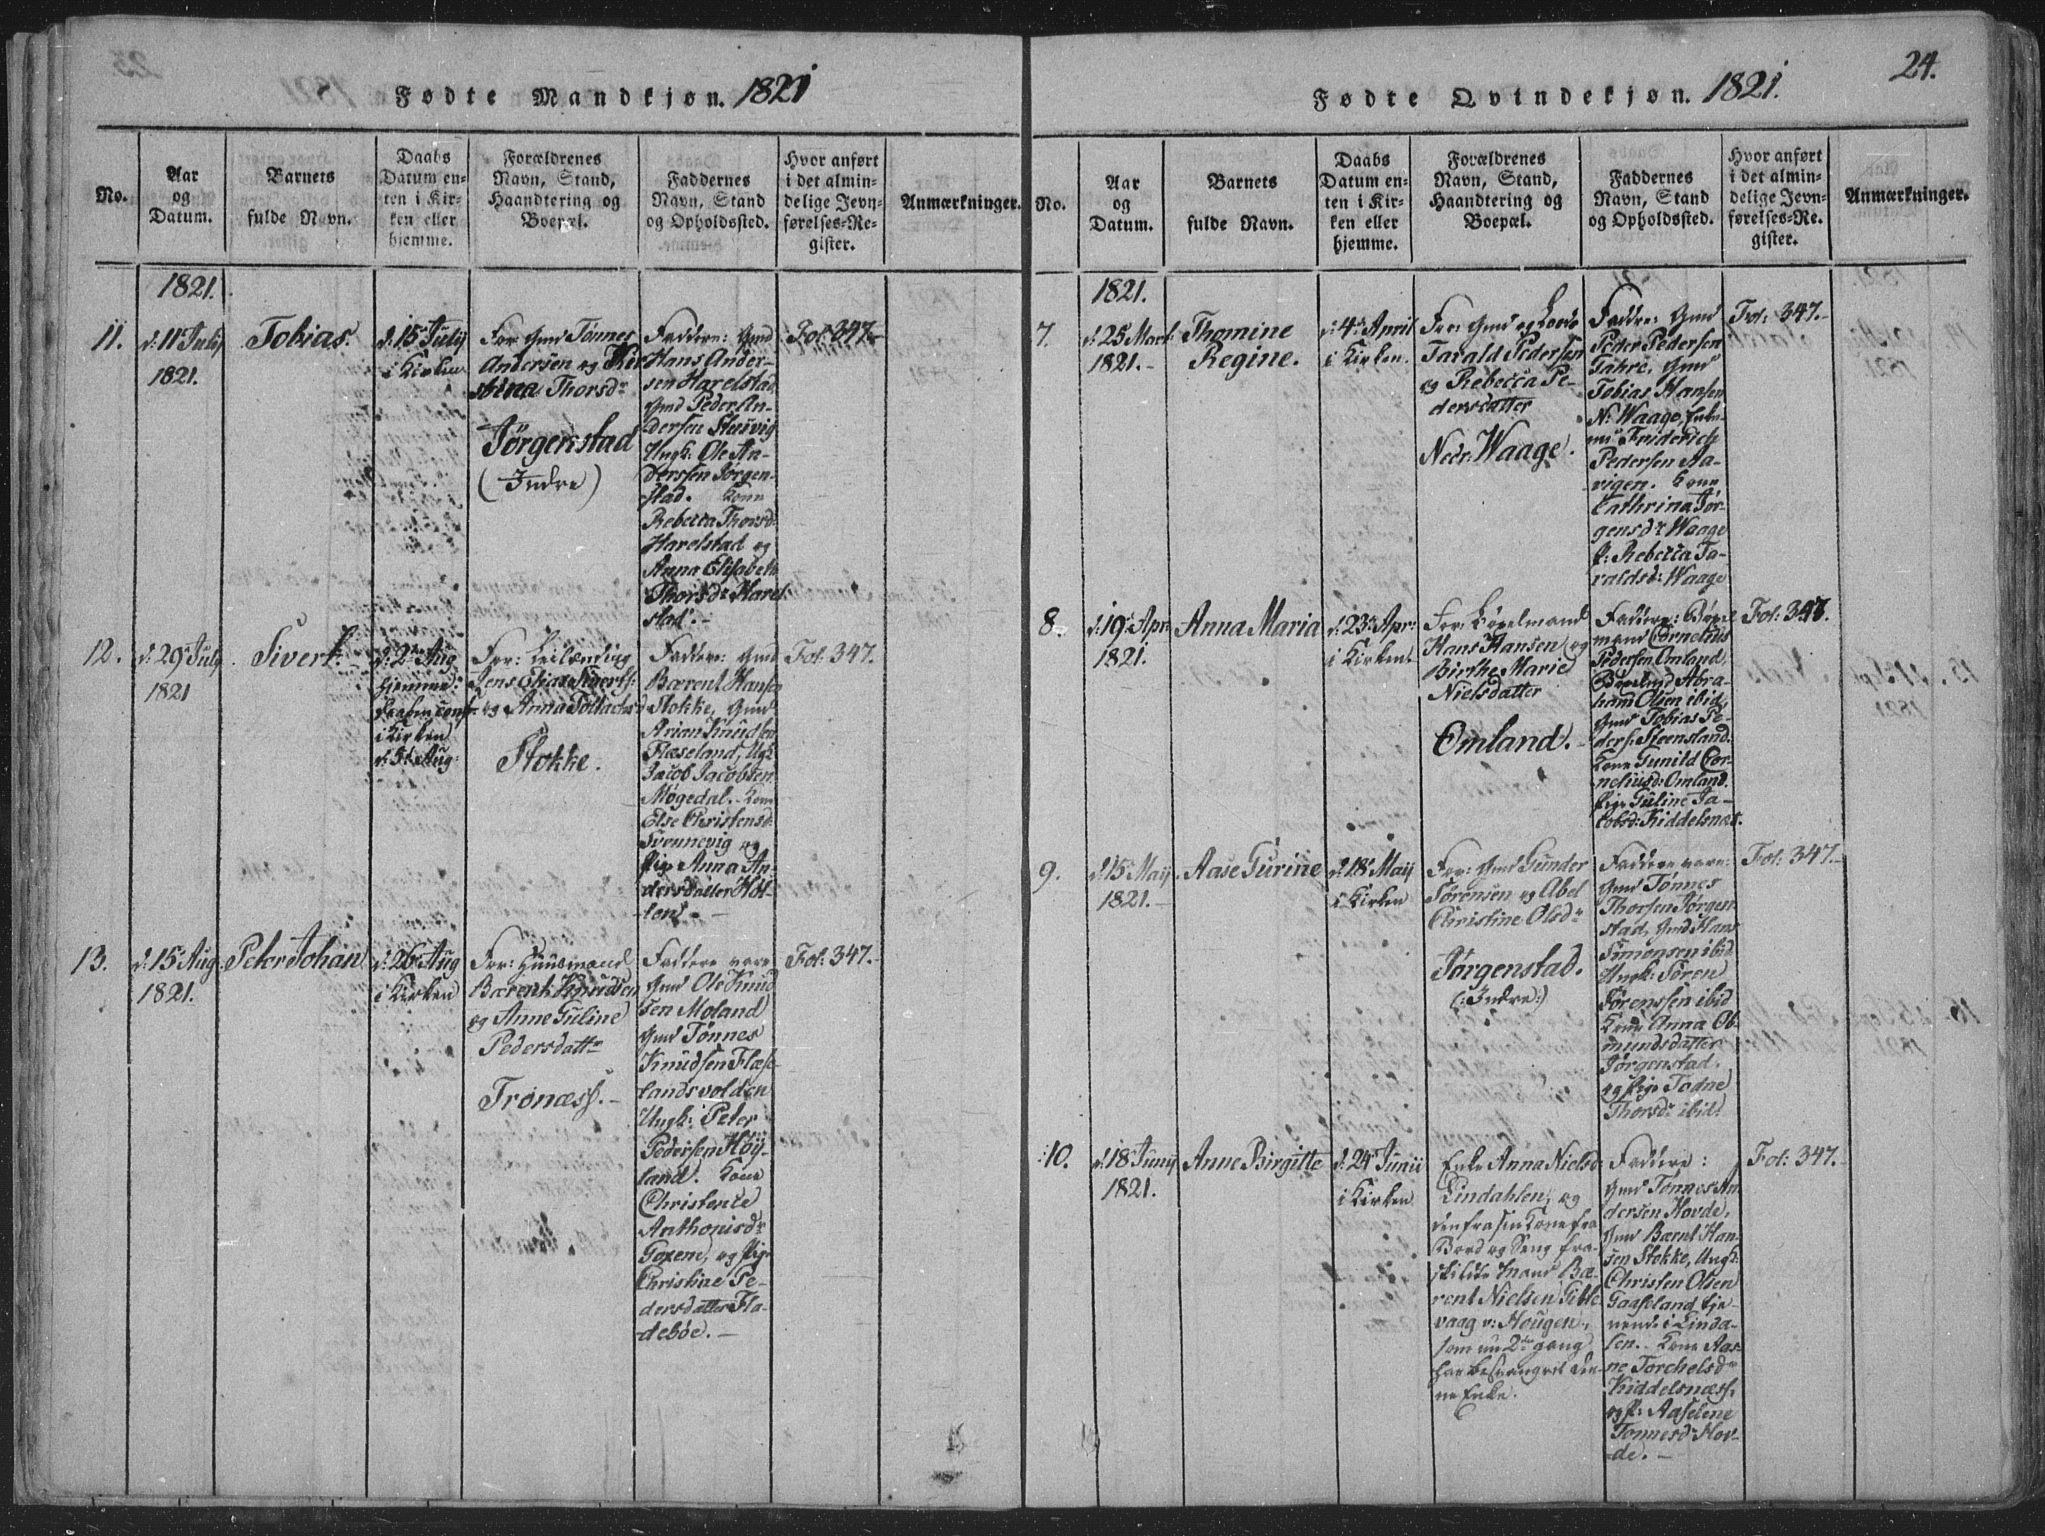 Fødte Mandkjøn. 1821
No.
Aar
og
Datum.
Barnets
fulde Navn.
Daabs
Datum en-
ten i Kir-
ken eller
hjemme.
Forældrenes
Navn, Stand,
Haandtering og
Boepæl.
Faddernes
Navn, Stand
og Opholdssted.
Hvor anført
i det almin-
delige Jevn-
førelses-Re-
gister.
Anmærkninger.
1821.
11.
d: 11 July
1821.
Tobias.
d: 15 July
i Kirken
For: Gmd Tønnes
Andersen og Kir
stina Thorsdr
Jørgenstad
(Indre)
Faddere: Gmd
Hans Ander-
sen Harelstad
Gmd Peder An-
dersen Stuvig
Ungk: Ole An-
derssen Jørgen-
stad. Kone
Rebecca Thorsd:
Harelstad og
Anna Elisabeth
Thorsdr Harel
stad. -
Fol: 347.
12.
d: 29 July
1821
Sivert.
d: 2 Aug
hjemme:
i Kirken
d: 5 Aug:
For: Leilænding
Jens Elias Sivertss:
og Anna
Stokke.
Faddere: Gmd
Bærent Hansen
Stokke, Gmd
Arian Knudsen
Flæseland, Ungk:
Jacob Jacobsen
Møgedal. Kone
Else Christensd:
Svennevig og
Pige Anna An-
dersdatter Høl-
land. -
Fol: 347.
13.
d: 15 Aug
1821.
Peter Johan
d: 26 Aug
i Kirken
For: Huusmand
Bærent Knudsen
og Anne Guline
Pedersdattr
Tronæss. -
Faddere vare
Gmd Ole Knud
sen Moland
Gmd Tønnes
Knudsen Flæse-
landsvolden
Ungk: Peter
Pedersen Høy-
land. Kone
Christence
Anthonisdr
Goxem, og Pige
Christine Pe-
dersdatter Fla-
deböe. -
Fol: 347.
24.
Fødte Qvindekjøn. 1821.
No.
Aar
og
Datum.
Barnets
fulde Navn.
Daabs
Datum en-
ten i Kir-
ken eller
hjemme.
Forældrenes
Navn, Stand,
Haandtering og
Boepæl.
Faddernes
Navn, Stand
og Opholdssted.
Hvor anført
i det almin-
delige Jevn-
førelses-Re-
gister.
Anmærkninger.
1821.
7.
d: 25 Mart:
1821. -
Thomine
Regine.
d: 4 April
i Kirken.
For: Gmd og Lods
Tarald Pedersen
og Rebecca Pe-
dersdatter
Nedr Waage.
Faddere: Gmd
Peder Pedersen
Fahre, Gmd
Tobias Hansen
N: Waage,
Friderich
Pedersen Aa-
vigen. Kone
Cathrina Jør-
gensdr Waage
P: Rebecca Ta-
raldsd: Waage
Fol: 347.
8.
d: 19 Apr:
1821.
Anna Maria
d: 23 Apr:
i Kirken.
For: Bøxelmand
Hans Hansen og
Birthe Marie
Nielsdatter
Omland. -
Faddere: Bøxel
mand Cornelius
Pedersen Omland,
Bøxelmd Abra-
ham Olsen ibid,
Gmd Tobias Pe-
ders: Steensland.
Kone Gunild Cor-
neliusd: Omland.
Pige Guline Ja-
cobsd: Kiddelsnæs.
Fol: 347.
9.
d: 15 May
1821. -
Aase Gurine
d: 18 May
i Kirken
For: Gmd Gunder
Sørensen og Abel
Christine Olsdr
Jørgenstad.
(:Indre:)
Faddere vare:
Gmd Tønnes
Thorsen Jørgen
stad, Gmd Hans
Simonsen ibid
Ungk: Søren
Sørenssen ibid
Kone Anna Ob-
mundsdatter
Jørgenstad,
og Pige Todne
Thorsd: ibid
Fol: 347.
10.
d: 18 Juny
1821.
Anne Birgitte
d: 24 Junii
i Kirken
Enke Anna Nielsd:
Lindahlen, og
den fra sin Kone fra
Bord og Seng fra-
skildte Mand Bæ-
rent Nielsen Gitle-
vaag v: Hougen,
som nu 2den gang
har besvangret den-
ne Enke.
Faddere:
Gmd Tønnes An
dersen Hovde,
Gmd Bærnt Han-
sen Stokke, Ungk:
Christen Olsen
Gaaseland tje-
nende i Linda-
len. Kone Aas-
ne Torchelsdr
Kiddelsnæss,
og P: Aaselene
Tonnesdr Hov-
de. -
Fol: 347.